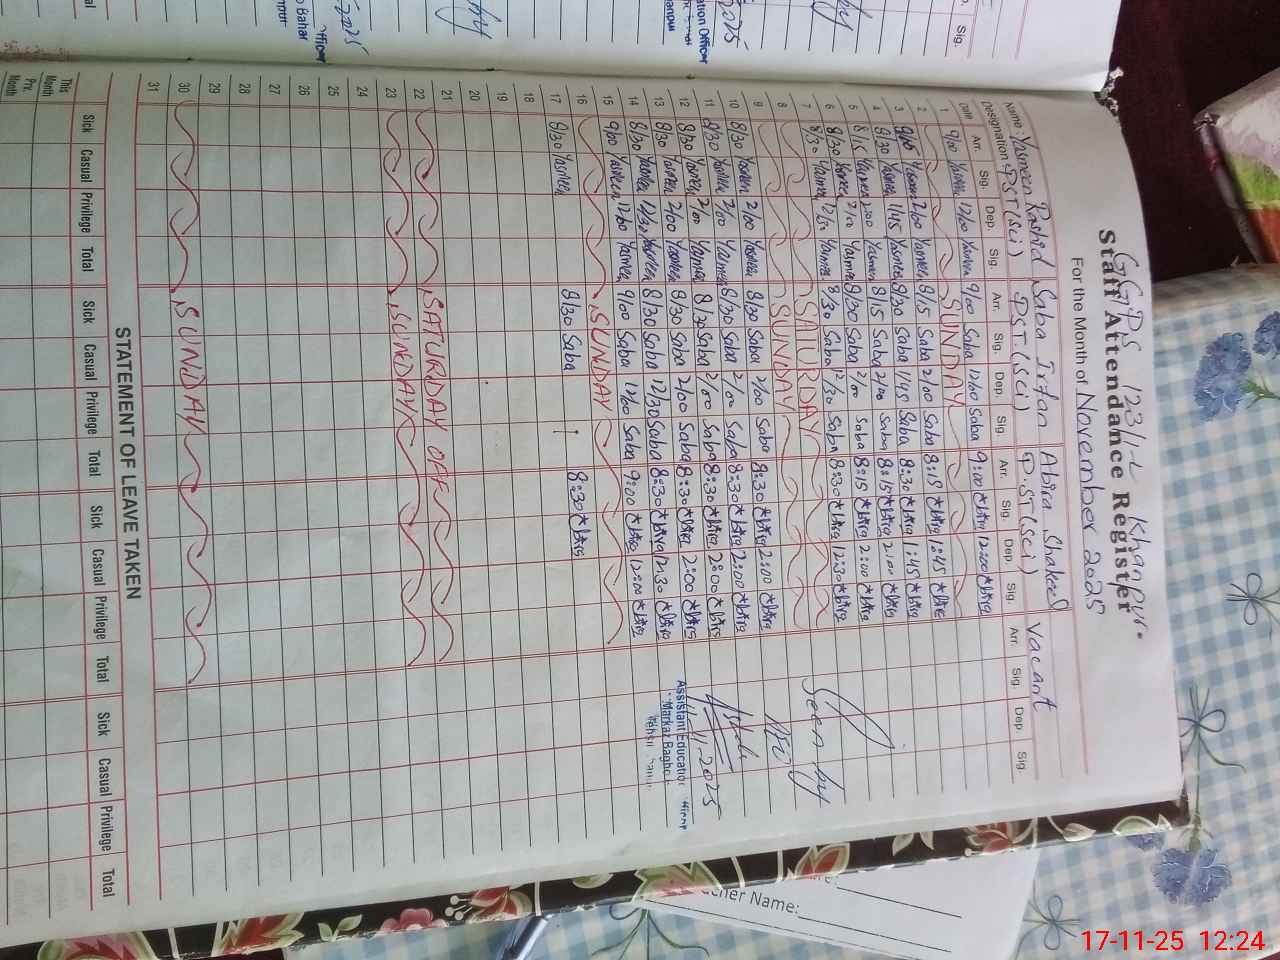 GGPS 123/1-L Khanpur.
Staff Attendance Register
For the Month of November 2025
Name: Yasmeen Rashid Saba Irfan Abira Shakeel Vacant
Designation PST(Sci) PST.(Sci) P.ST(Sci)
Date Arr. Sig. Dep. Sig. Arr. Sig. Dep. Sig. Arr. Sig. Dep. Sig. Arr. Sig. Dep. Sig.
1 9/00 Yasmeen 12/00 Yasmeen 9/00 Saba 12/00 Saba 9:00 Abira 12:00 Abira
2 SUNDAY
3 Yasmeen 2/00 Yasmeen 8/15 Saba 2/00 Saba 8:15 Abira 1:45 Abira
4 8/30 Yasmeen 1/45 Yasmeen 8/30 Saba 1/45 Saba 8:30 Abira 1:45 Abira
5 8/15 Yasmeen 2:00 Yasmeen 8/15 Saba 2/00 Saba 8:15 Abira 2:00 Abira
6 8/30 Yasmeen 2/00 Yasmeen 8/30 Saba 2/00 Saba 8:15 Abira 2:00 Abira
7 8/30 Yasmeen 12/30 Yasmeen 8/30 Saba 12/30 Saba 8:30 Abira 12:30 Abira
8 SATURDAY
9 SUNDAY
10 8/30 Yasmeen 2/00 Yasmeen 8/30 Saba 2/00 Saba 8:30 Abira 2:00 Abira
11 8/30 Yasmeen 2/00 Yasmeen 8/30 Saba 2/00 Saba 8:30 Abira 2:00 Abira
12 8/30 Yasmeen 2/00 Yasmeen 8/30 Saba 2/00 Saba 8:30 Abira 2:00 Abira
13 8/30 Yasmeen 2/00 Yasmeen 8/30 Saba 2/00 Saba 8:30 Abira 2:00 Abira
14 8/30 Yasmeen 12/30 Yasmeen 8/30 Saba 12/30 Saba 8:30 Abira 12:30 Abira
15 9/00 Yasmeen 12/00 Yasmeen 9/00 Saba 12/00 Saba 9:00 Abira 12:00 Abira
16 SUNDAY
17 8/30 Yasmeen 8/30 Saba 8:30 Abira
18
19
20
21
22 SATURDAY OFF
23 SUNDAY
24
25
26
27
28
29
30 SUNDAY
31
Seen by
11-2025
Assistant Education
Markaz Bagho
STATEMENT OF LEAVE TAKEN
Sick Casual Privilege Total Sick Casual Privilege Total Sick Casual Privilege Total Sick Casual Privilege Total
This Month
Prv. Month
Sig.
2025
Officer
Bahar
2025
her Name:
17-11-25 12:24